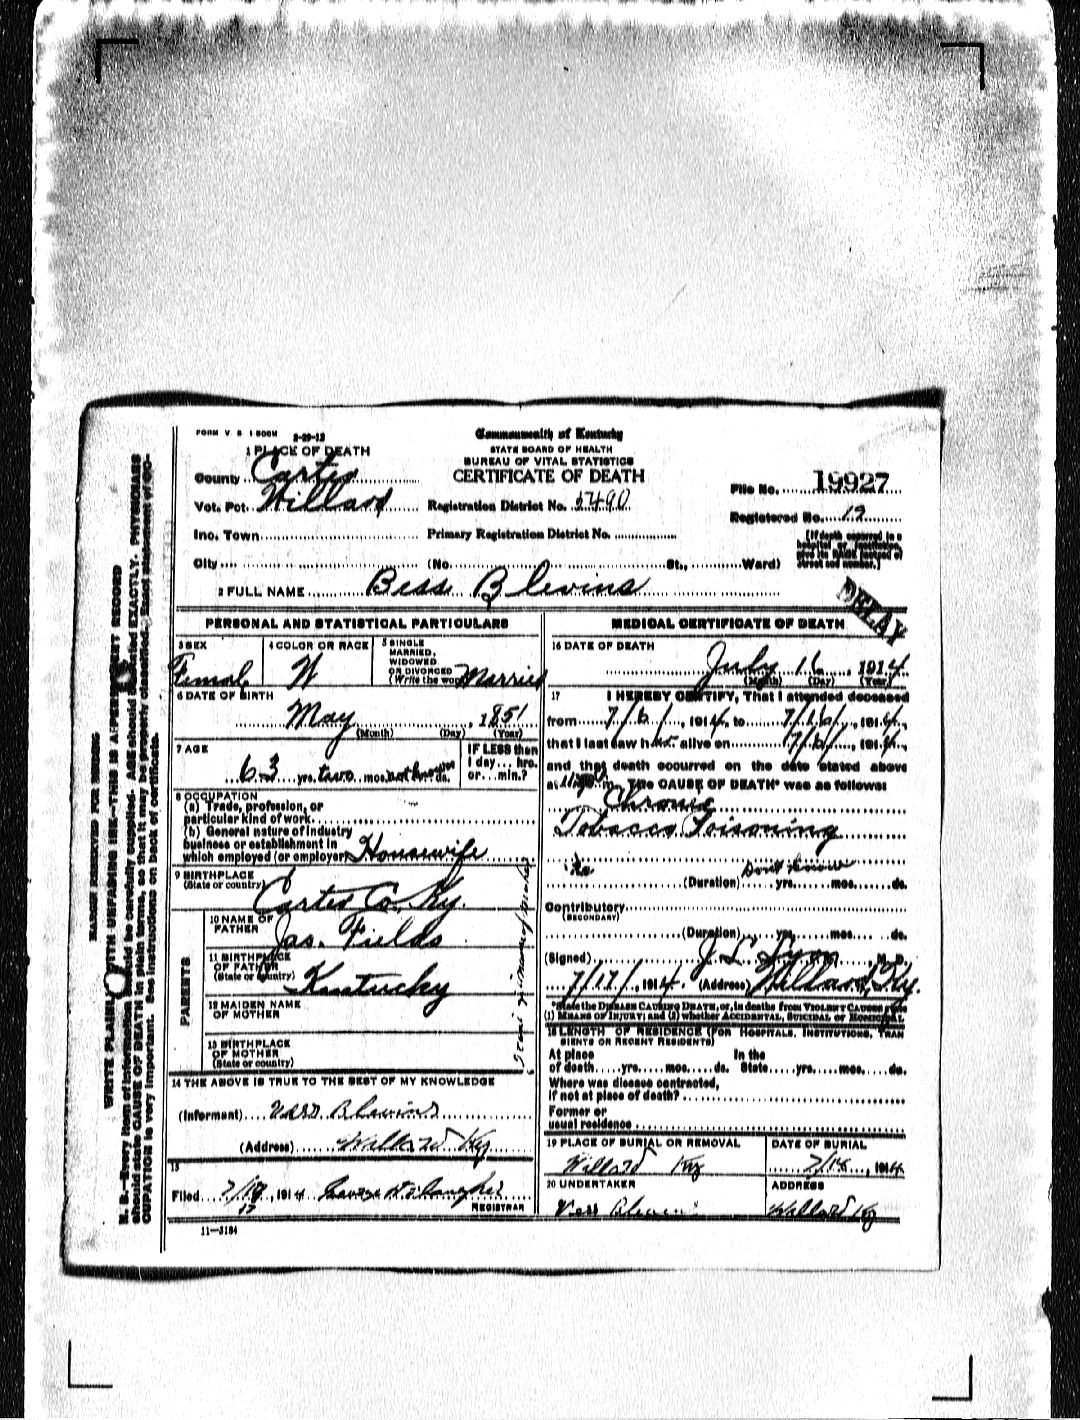 FORM V. S. 1 500M 2-29-12
Commonwealth of Kentucky
STATE BOARD OF HEALTH
BUREAU OF VITAL STATISTICS
CERTIFICATE OF DEATH
1 PLACE OF DEATH
County Carter
Vot. Pct. Willard
Registration District No. 5490
File No. 19927
Registered No. 12
Inc. Town
Primary Registration District No.
City (No. St., Ward)
[If death occurred in a
hospital or institution,
give its NAME instead of
street and number.]
2 FULL NAME Bess Blevins
DELAY
PERSONAL AND STATISTICAL PARTICULARS
3 SEX
Female
4 COLOR OR RACE
W
5 SINGLE
MARRIED,
WIDOWED
OR DIVORCED
(Write the word) Married
6 DATE OF BIRTH
May, 1851
(Month) (Day) (Year)
7 AGE
63 yrs. two mos. not known ds.
IF LESS than
1 day... hrs.
or... min.?
8 OCCUPATION
(a) Trade, profession, or
particular kind of work
(b) General nature of industry
business or establishment in
which employed (or employer) Housewife
9 BIRTHPLACE
(State or country)
Carter Co. Ky.
PARENTS
10 NAME OF
FATHER
Jas. Fields
11 BIRTHPLACE
OF FATHER
(State or country)
Kentucky
12 MAIDEN NAME
OF MOTHER
13 BIRTHPLACE
OF MOTHER
(State or country)
name of mother
14 THE ABOVE IS TRUE TO THE BEST OF MY KNOWLEDGE
(Informant) Vess Blevins
(Address) Willard Ky
15
Filed 7/18, 1914
17
REGISTRAR
11-3184
MEDICAL CERTIFICATE OF DEATH
16 DATE OF DEATH
July 16, 1914
(Month) (Day) (Year)
17 I HEREBY CERTIFY, That I attended deceased
from 7/6/, 1914, to 7/16/, 1914,
that I last saw h alive on 7/6/, 1914,
and that death occurred on the date stated above
at m. The CAUSE OF DEATH* was as follows:
Chronic
Tobacco Poisoning
Don't know
(Duration) yrs. mos. ds.
Contributory
(SECONDARY)
(Duration) yrs. mos. ds.
(Signed) J. L. Lyon M. D.
7/17/, 1914. (Address) Willard, Ky.
*State the DISEASE CAUSING DEATH, or, in deaths from VIOLENT CAUSES state
(1) MEANS OF INJURY; and (2) whether ACCIDENTAL, SUICIDAL or HOMICIDAL.
18 LENGTH OF RESIDENCE (FOR HOSPITALS, INSTITUTIONS, TRAN
SIENTS OR RECENT RESIDENTS)
At place In the
of death yrs. mos. ds. State yrs. mos. ds.
Where was disease contracted,
if not at place of death?
Former or
usual residence
19 PLACE OF BURIAL OR REMOVAL
Willard Ky
DATE OF BURIAL
7/18, 1914
20 UNDERTAKER
Vess Blevins
ADDRESS
Willard Ky
MARGIN RESERVED FOR BINDING
WRITE PLAINLY WITH UNFADING INK—THIS IS A PERMANENT RECORD
N. B.—Every item of information should be carefully supplied. AGE should be stated EXACTLY. PHYSICIANS
should state CAUSE OF DEATH in plain terms, so that it may be properly classified. Exact statement of OC-
CUPATION is very important. See instructions on back of certificate.